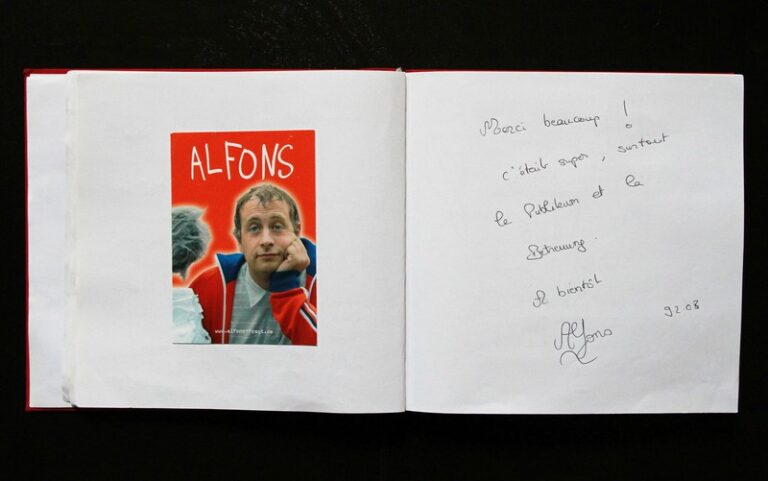 ALFONS
www.alfons-fragt.de
Merci beaucoup !
c'était super, surtout
le Publikum et la
Betreuung.
A bientôt
9.2.08
Alfons